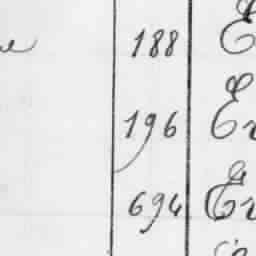 188 E
196 Er
694 Er